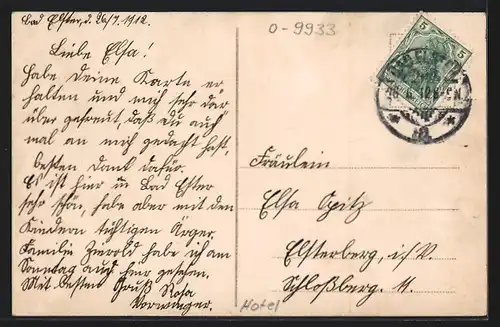 Bad Elster, d. 26/7. 1912.
0-9933
Liebe Elsa!
Habe Deine Karte er
halten und mich sehr dar
über gefreut, daß du auch
mal an mich gedacht hast,
besten Dank dafür.
Es ist hier in Bad Elster
sehr schön, habe aber mit den
Kindern tüchtigen Ärger.
Familie Zierold habe ich am
Sonntag auch hier gesehen.
Mit besten Gruß Rosa
5
5
Fräulein
Elsa Opitz
Elsterberg, i/V.
Schloßberg. 11.
Hotel